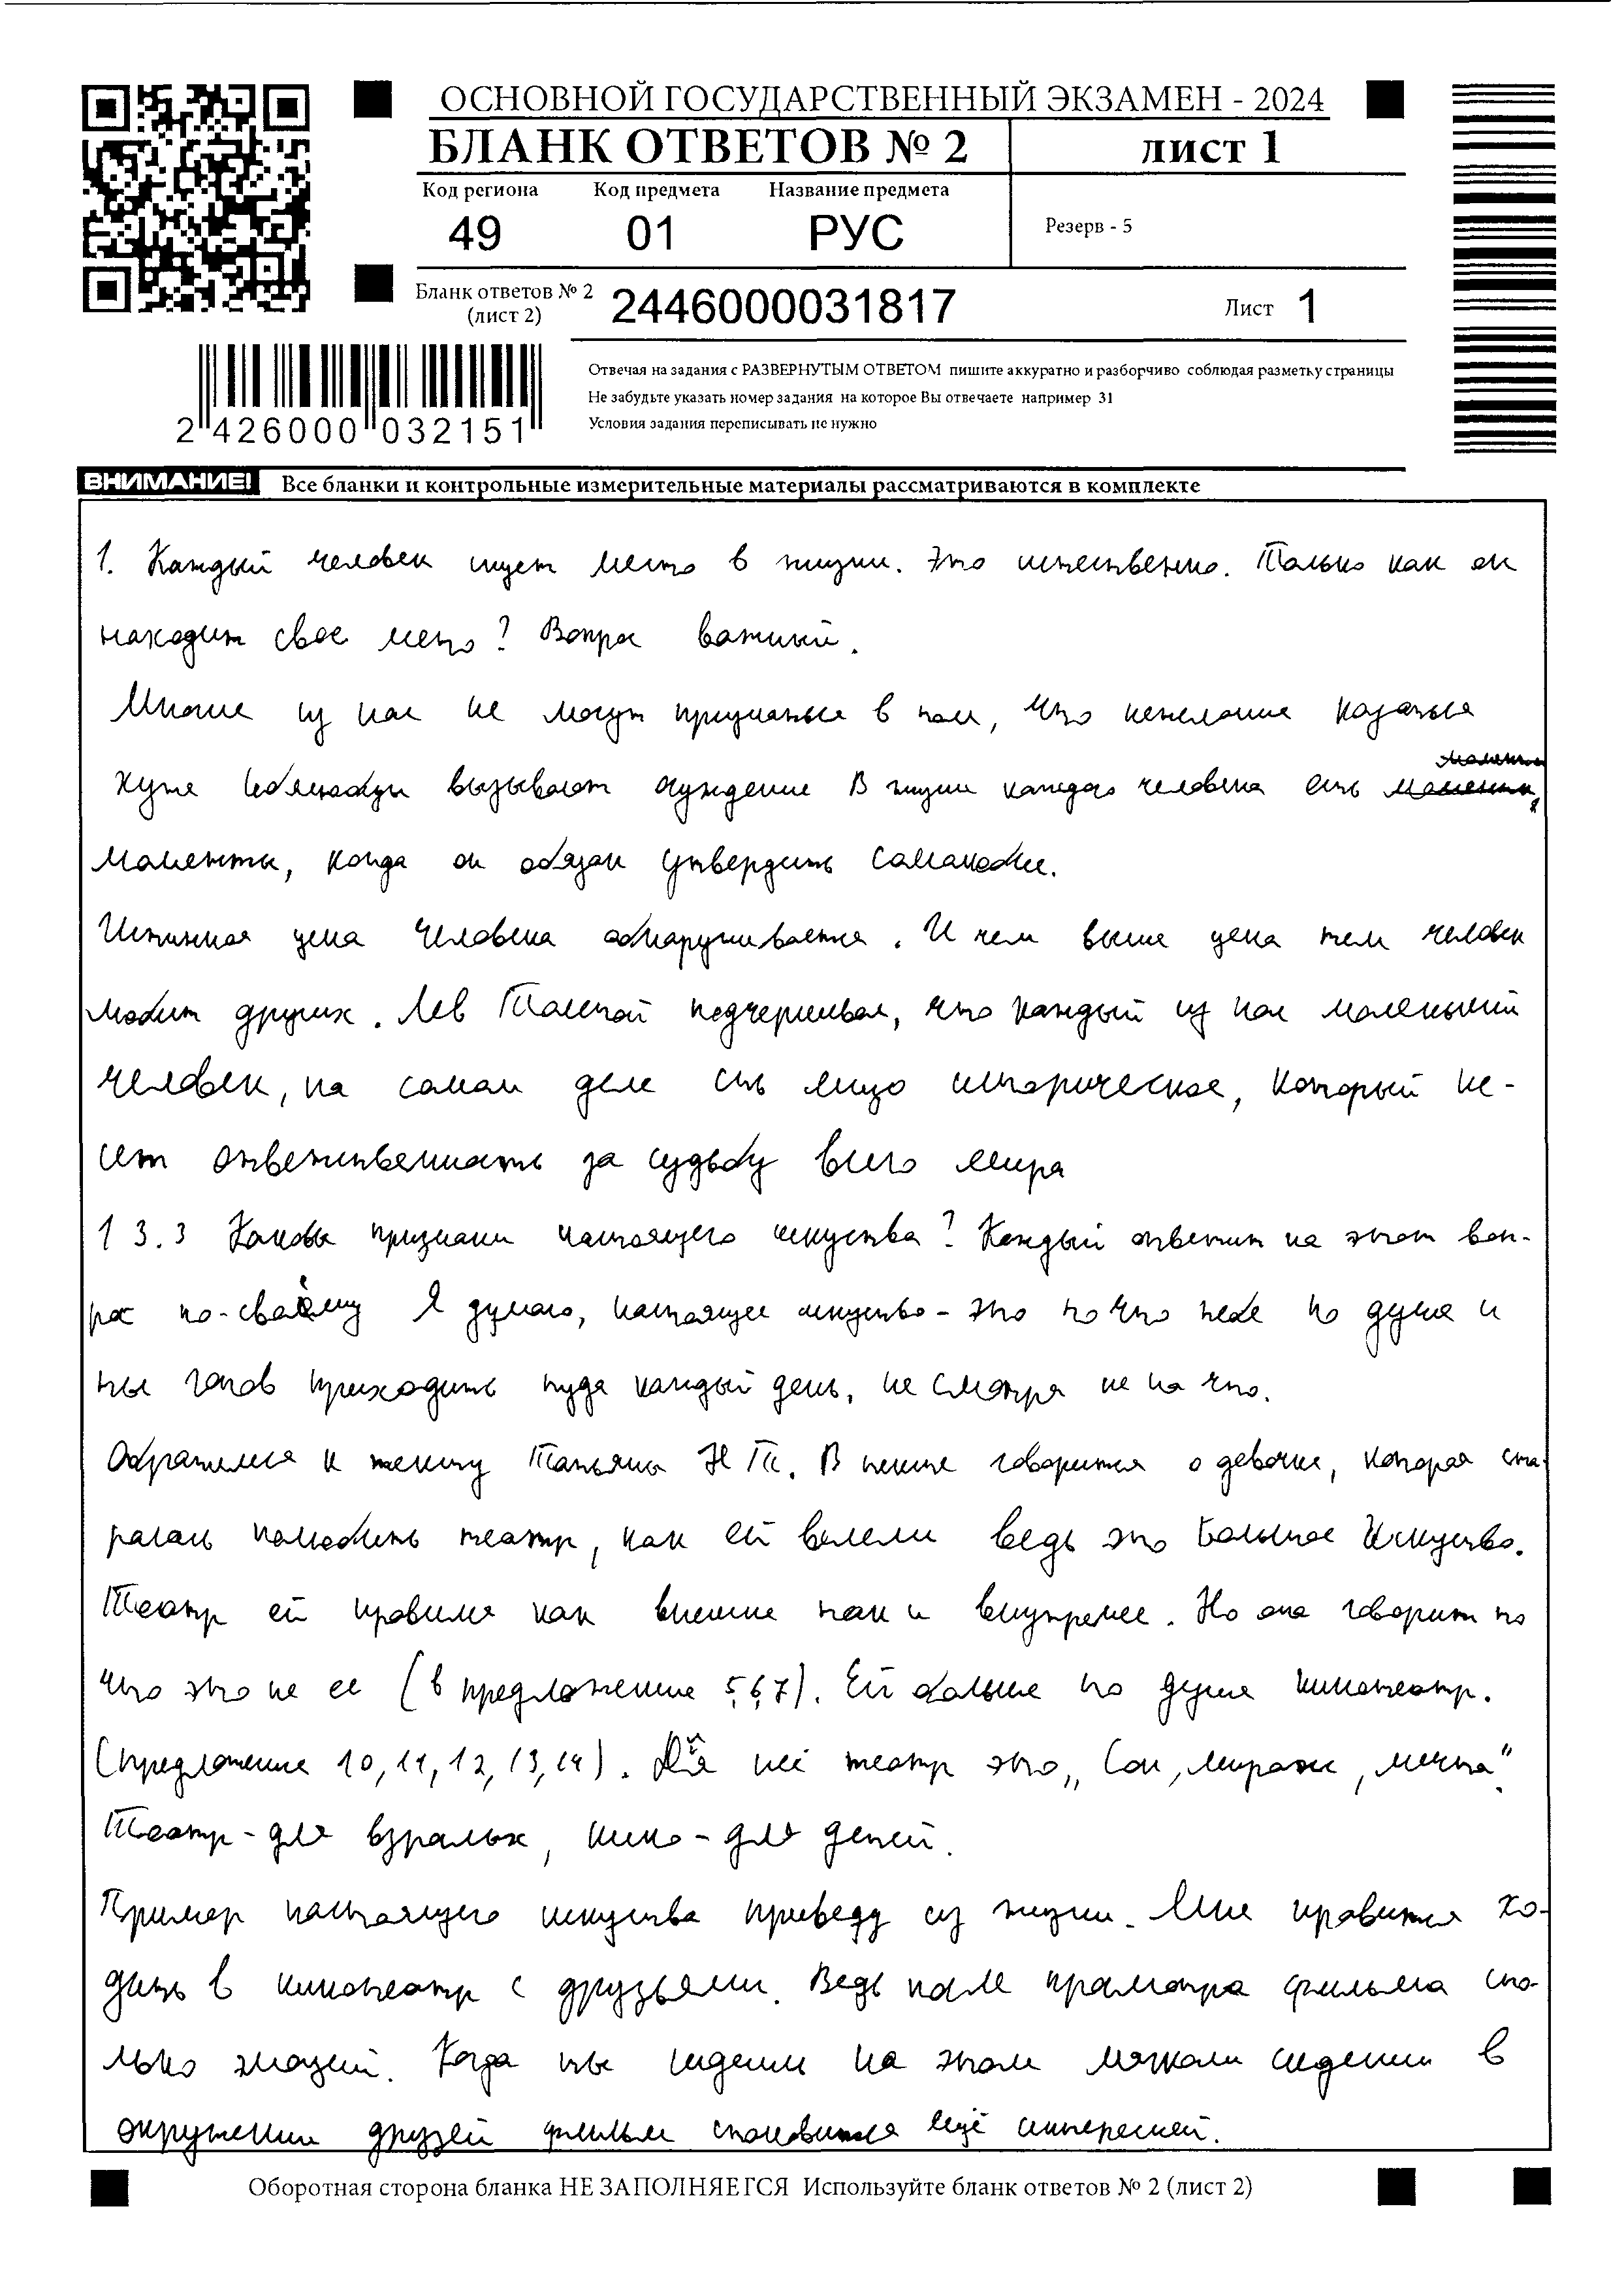 ОСНОВНОЙ ГОСУДАРСТВЕННЫЙ ЭКЗАМЕН - 2024
БЛАНК ОТВЕТОВ № 2 лист 1
Код региона Код предмета Название предмета
49 01 РУС
Резерв - 5
Бланк ответов № 2 (лист 2) 2446000031817 Лист 1
Отвечая на задания с РАЗВЕРНУТЫМ ОТВЕТОМ пишите аккуратно и разборчиво соблюдая разметку страницы
Не забудьте указать номер задания на которое Вы отвечаете например 31
Условия задания переписывать не нужно
2 426000 032151
ВНИМАНИЕ! Все бланки и контрольные измерительные материалы рассматриваются в комплекте
1. Каждый человек ищет место в жизни. Это естественно. Только как он
находит свое место? Вопрос важный.
Многие из нас не могут признаться в том, что нежелание казаться
хуже вызывает суждение В жизни каждого человека есть
моменты, когда он обязан утвердить
Истинная цена человека обнаруживается. И чем выше цена тем человек
любит других. Лев Толстой подчеркивал, что каждый из нас маленький
человек, на самом деле есть лицо историческое, который не-
сет ответственность за судьбу всего мира
13.3 Каковы признаки настоящего искуства? Каждый ответит на этот воп-
рос по-своему Я думаю, настоящее искуство - это то что тебе по душе и
ты готов приходить туда каждый день, не смотря не на что.
Обратимся к тексту Татьяны Н Тт. В тексте говорится о девочке, которая ста-
ралась полюбить театр, как ей велели ведь это Большое Искуство.
Театр ей нравился как внешне так и внутренее. Но она говорит то
что это не ее (в предложение 5,6,7). Ей больше по душе кинотеатр.
(предложение 10, 11, 12, 13, 14). Для неё театр это „Сон, мираж, мечта".
Театр - для взрослых, кино - для детей.
Пример настоящего искуства приведу из жизни. Мне нравится хо-
дить в кинотеатр с друзьями. Ведь после просмотра фильма сто-
лько эмоций. Когда ты сидешь на этом мягком сидении в
окружении друзей фильм становится ещё интересней.
Оборотная сторона бланка НЕ ЗАПОЛНЯЕТСЯ Используйте бланк ответов № 2 (лист 2)